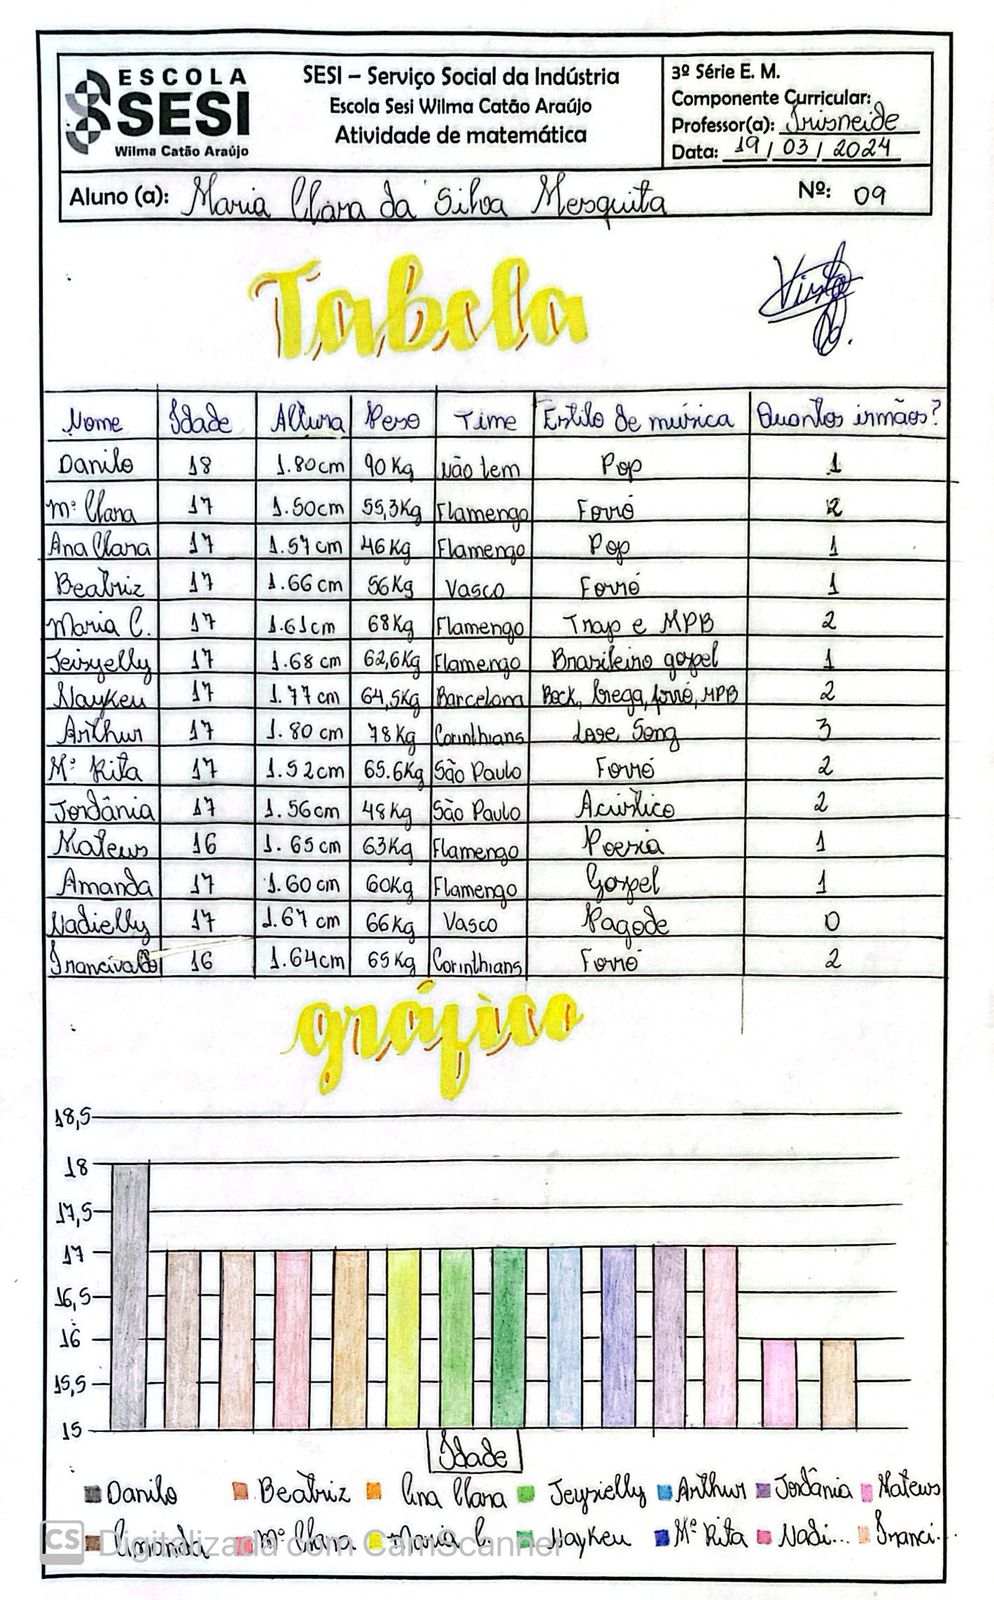 ESCOLA
SESI
Wilma Catão Araújo
SESI – Serviço Social da Indústria
Escola Sesi Wilma Catão Araújo
Atividade de matemática
3º Série E. M.
Componente Curricular:
Professor(a): Irisneide
Data: 19/03/2024
Aluno (a): Maria Clara da Silva Mesquita Nº: 09
Tabela
Visto
Nome Idade Altura Peso Time Estilo de música Quantos irmãos?
Danilo 18 1.80cm 90Kg não tem Pop 1
Mª Clara 17 1.50cm 55,3Kg Flamengo Forró 2
Ana Clara 17 1.57cm 46Kg Flamengo Pop 1
Beatriz 17 1.66cm 56Kg Vasco Forró 1
Maria C. 17 1.61cm 68Kg Flamengo Trap e MPB 2
Jeisyelly 17 1.68cm 62,6Kg Flamengo Brasileiro gospel 1
Naykeu 17 1.77cm 64,5Kg Barcelona Rock, brega, forró, MPB 2
Arthur 17 1.80cm 78Kg Corinthians Love Song 3
Mª Rita 17 1.52cm 65.6Kg São Paulo Forró 2
Jordânia 17 1.56cm 48Kg São Paulo Acústico 2
Mateus 16 1.65cm 63Kg Flamengo Poesia 1
Amanda 17 1.60cm 60Kg Flamengo Gospel 1
Nadielly 17 1.67cm 66Kg Vasco Pagode 0
Francivaldo 16 1.64cm 65Kg Corinthians Forró 2
gráfico
18,5
18
17,5
17
16,5
16
15,5
15
Idade
Danilo Beatriz Ana Clara Jeysielly Arthur Jordânia Mateus
Amanda Mª Clara Maria C. Naykeu Mª Rita Nadi... Franci...
CS Digitalizada com CamScanner